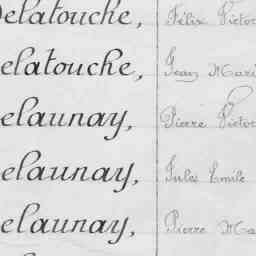 Delatouche, Félix Victor
elatouche, Jean Mari
elaunay, Pierre Victor
elaunay, Jules Emile
elaunay, Pierre Ma